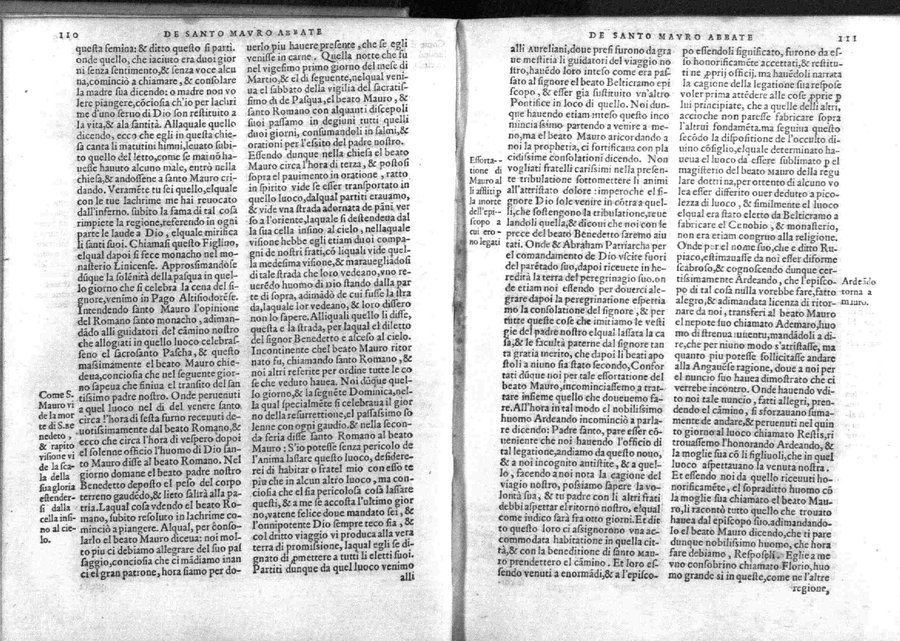 110
DE SANTO MAVRO ABBATE
questa semina: & ditto questo si parti.
onde quello, che iaciuto era duoi gior
ni senza sentimento, & senza voce alcu
na, cominciò a chiamare, & consolare
la madre sua dicendo: o madre non vo
lere piangere, cōciosia ch'io per lachri
me d'vno seruo di Dio son restituito a
la vita, & ala sanità. Allaquale quello
dicendo, ecco che egli in questa chie
sa canta li matutini himni, leuato subi
to quello del letto, come se mai nō ha
uesse hauuto alcuno male, entrò nella
chiesa, & andossene a santo Mauro cri
dando. Veramēte tu sei quello, elquale
con le tue lachrime me hai reuocato
dall'inferno. subito la fama di tal cosa
rimpiete la regione, referendo in ogni
parte le laude a Dio, elquale mirifica
li santi suoi. Chiamasi questo Figlino,
elqual dapoi si fece monacho nel mo-
nasterio Linicense. Approsimandose
dūque la solēnità della pasqua in quel
lo giorno che si celebra la cena del si
gnore, venimo in Pago Altisiodorēse.
Intendendo santo Mauro l'opinione
del Romano santo monacho, adiman-
dādo alli guidatori del cāmino nostro
che allogiati in quello luoco celebras
seno el sacrosanto Pascha, & questo
massimamente el beato Mauro chie-
deua, conciosia che nel seguente gior-
no sapeua che finiua el transito del san
tissimo padre nostro. Onde peruenuti
a quel luoco nel dì del venere santo
circa l'hora di sesta furno receuuti de-
uotissimamente dal beato Romano, &
ecco che circa l'hora di vespero dopoi
el solenne officio l'huomo di Dio san-
to Mauro disse al beato Romano. Nel
giorno domane el beato padre nostro
Benedetto deposto el peso del corpo
terreno gaudēdo, & lieto salirà alla pa-
tria. Laqual cosa vdendo el beato Ro-
mano, subito resoluto in lachrime co-
minciò a piangere. Alqual, per cōsol-
larlo el beato Mauro diceua: noi mol-
to piu ci debiamo allegrare del suo pas
saggio, conciosia che ci mādiamo inan
ci el gran patrone, hora siamo per do-
Come S.
Mauro vi
de la mor
te di S. Be
nedetto,
& rapito
visione vi
de la sca-
la della
sua gloria
estender-
si dalla
cella insi-
no al cie-
lo.
uerlo piu hauere presente, che se egli
venisse in carne. Quella notte che fu
nel vigesimo primo giorno del mese di
Martio, & el dì seguente, nelqual veni-
ua el sabbato della vigilia del sacratis-
simo dì de Pasqua, el beato Mauro, &
santo Romano con alquanti discepoli
suoi passamo in degiuni tutti quelli
duoi giorni, consumandoli in salmi, &
orationi per l'essito del padre nostro.
Essendo dunque nella chiesa el beato
Mauro circa l'hora di terza, & postosi
sopra el pauimento in oratione, ratto
in spirito vide se esser transportato in
quello luoco, dalqual partiti erauamo,
& vide vna strada adornata de pāni ver
so a l'oriente, laquale si destendeua dal
la sua cella insino al cielo, nellaquale
visione hebbe egli etiam duoi compa-
gni de nostri frati, cō liquali vide quel-
la medesima visione, & marauegliādosi
di tale strada che loro vedeano, vno re-
uerēdo huomo di Dio stando dalla par
te di sopra, adimādò de cui fusse la stra
da, laquale lor vedeano, & loro dissero
non lo sapere. Alliquali quello li disse,
questa e la strada, per laqual el diletto
del signor Benedetto e alceso al cielo.
Incontinente chel beato Mauro ritor
nato fu, chiamando santo Romano, &
noi altri referite per ordine tutte le co
se che veduto hauea. Noi dūque quel-
lo giorno, & la seguēte Dominica, nel-
la qual specialmēte si celebraua il gior
no della resurrettione, el passassimo so
lenne con ogni gaudio. & nella secon-
da feria disse santo Romano al beato
Mauro: S'io potesse senza pericolo de
l'anima lassare questo luoco, desidere-
rei di habitar o fratel mio con esso te
piu che in alcun altro luoco, ma con-
ciosia che el sia pericolosa cosa lassare
questi, & a me se accosta l'ultimo gior
no, vatene felice doue mandato sei, &
l'onnipotente Dio sempre teco sia, &
col dritto viaggio vi produca alla vera
terra di promissione, laqual egli se di-
gnato di ꝓmettere a tutti li eletti suoi.
Partiti dunque da quel luoco venimo
alli
DE SANTO MAVRO ABBATE
111
alli Aureliani, doue presi furono da gra
ue mestitia li guidatori del viaggio no
stro, hauēdo loro inteso come era pas-
sato al signore el beato Belticramo epi
scopo, & esser gia sustituito vn'altro
Pontifice in loco di quello. Noi dun-
que hauendo etiam inteso questo inco
minciassimo partendo a venire a me-
no, ma el beato Mauro aricordando a
noi la prophetia, ci fortificaua con pla
cidissime consolationi dicendo. Non
vogliati fratelli carissimi nella presen-
te tribulatione sottomettere li animi
all'attristato dolore: imperoche el si-
gnore Dio sole venire in cōtra a quel-
li, che sostengono la tribulatione, reue
landosi quella, & diconi che noi con le
prece del beato Benedetto saremo aiu
tati. Onde & Abraham Patriarcha per
el comandamento de Dio vscite fuori
del parētado suo, dapoi riceuete in he-
redità la terra del peregrinagio suo. on
de etiam noi essendo per douerci ale-
grare dapoi la peregrinatione espettia
mo la consolatione del signore, & per
tutte queste cose che imitiamo le vesti
gie del padre nostro elqual lassata la ca
sa, & le facultà paterne dal signore tan
ta gratia meritò, che dapoi li beati apo
stoli a niuno sia stato secondo. Confor
tati dūque noi per tale essortatione del
beato Mauro, incominciassemo a trat-
tare insieme quello che doueuemo fa-
re. All'hora in tal modo el nobilissimo
huomo Ardeando incominciò a parla-
re dicendo: Padre santo, pare esser cō-
ueniente che noi hauendo l'officio di
tal legatione, andiamo da questo nouo,
& a noi incognito antistite, & a quel-
lo, facendo a noi nota la cagione del
viagio nostro, possiamo sapere la vo-
lontà sua, & tu padre con li altri frati
debbi aspettar el ritorno nostro, elqual
come indico sarà fra otto giorni. Et dit
to questo loro ci assignorono vna ac-
commodata habitatione in quella cit-
tà, & con la beneditione di santo Mau
ro prendettero el cāmino. Et loro es-
sendo venuti a enormādi, & a l'episco-
Essorta-
tione di
Mauro al
li afflitti p
la morte
dell'epi-
scopo a
cui ero-
no legati
po essendoli significato, furono da es-
so honorificamēte accettati, & restitu-
ti ne ꝓprij officij. ma hauēdoli narrata
la cagione della legatione sua respose
voler prima attēdere alle cose ꝓprie p
lui principiate, che a quelle delli altri,
accioche non paresse fabricare sopra
l'altrui fondamēta. ma seguiua questo
secōdo la dispositione de l'occulto di-
uino cōsiglio, elquale determinato ha-
ueua el luoco da esser sublimato p el
magisterio del beato Mauro della regu
lare dottrina, per ottento di alcuno vo
lea esser differito ouer deduto a picco-
lezza di luoco, & similmente el luoco
elqual era stato eletto da Belticramo a
fabricare el Cenobio, & monasterio,
non era etiam congruo alla religione.
Onde per el nome suo, che e ditto Ru-
piaco, estimauasse da noi esser difforme
& scabroso, & cognoscendo dunque cer-
tissimamente Ardeando, che l'episco-
po di tal cosa nulla vorebbe fare, fatto
alegro, & adimandata licenza di ritor-
nare da noi, transferi al beato Mauro
el nepote suo chiamato Ademaro, huo
mo di strenua iuuentu, mandādoli a di-
re, che per niuno modo s'atristasse, ma
quanto piu potesse sollicitasse andare
alla Angauēse ragione, doue a noi per
el nuncio suo hauea dimostrato che ci
verrebbe incontro. Onde hauendo vdi
to noi tale nuncio, fatti allegri, pren-
dendo el cāmino, si sforzauano suma-
mente de andare, & peruenuti nel quin
to giorno al luoco chiamato Restis, ri
trouassemo l'honorando Ardeando, &
la moglie sua cō li figliuoli, che in quel
luoco aspettauano la venuta nostra.
Et essendo noi da quello riceuuti ho-
norificamēte, el sopraditto huomo cō
la moglie sua chiamato el beato Mau-
ro, li racontò tutto quello che trouato
hauea dal episcopo suo, adimandando-
lo el beato Mauro dicendo, che ti pare
dunque nobilissimo huomo, che hora
fare debiamo. Resposeli. Eglie a me
vno consobrino chiamato Florio, huo
mo grande si in queste, come ne l'altre
regione,
Ardeādo
torna a
mauro.